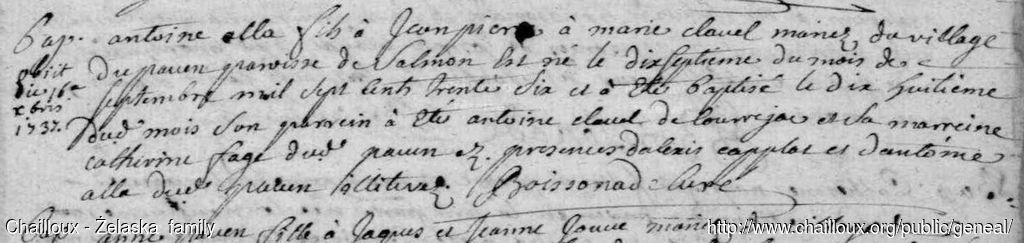 Bap. antoine alla fils à Jean pierre à marie clavel mariez du village
obiit du pauen paroisse de Salmon Est né le dixseptieme du mois de
die 16e septembre mil sept cents trente six et à Eté baptisé le dix huitième
xbris
1737. dud. mois Son parrein à Eté antoine clavel de lourejac et sa marreine
catherine fage dud. pauen ez presences dalexis capplat et dantoine
alla dud. pauen illiterez Boissonade Curé
Bap. anne pauen fille à Jaques et Jeanne Jouve
Chailloux - Żelaska family
http://www.chailloux.org/public/geneal/